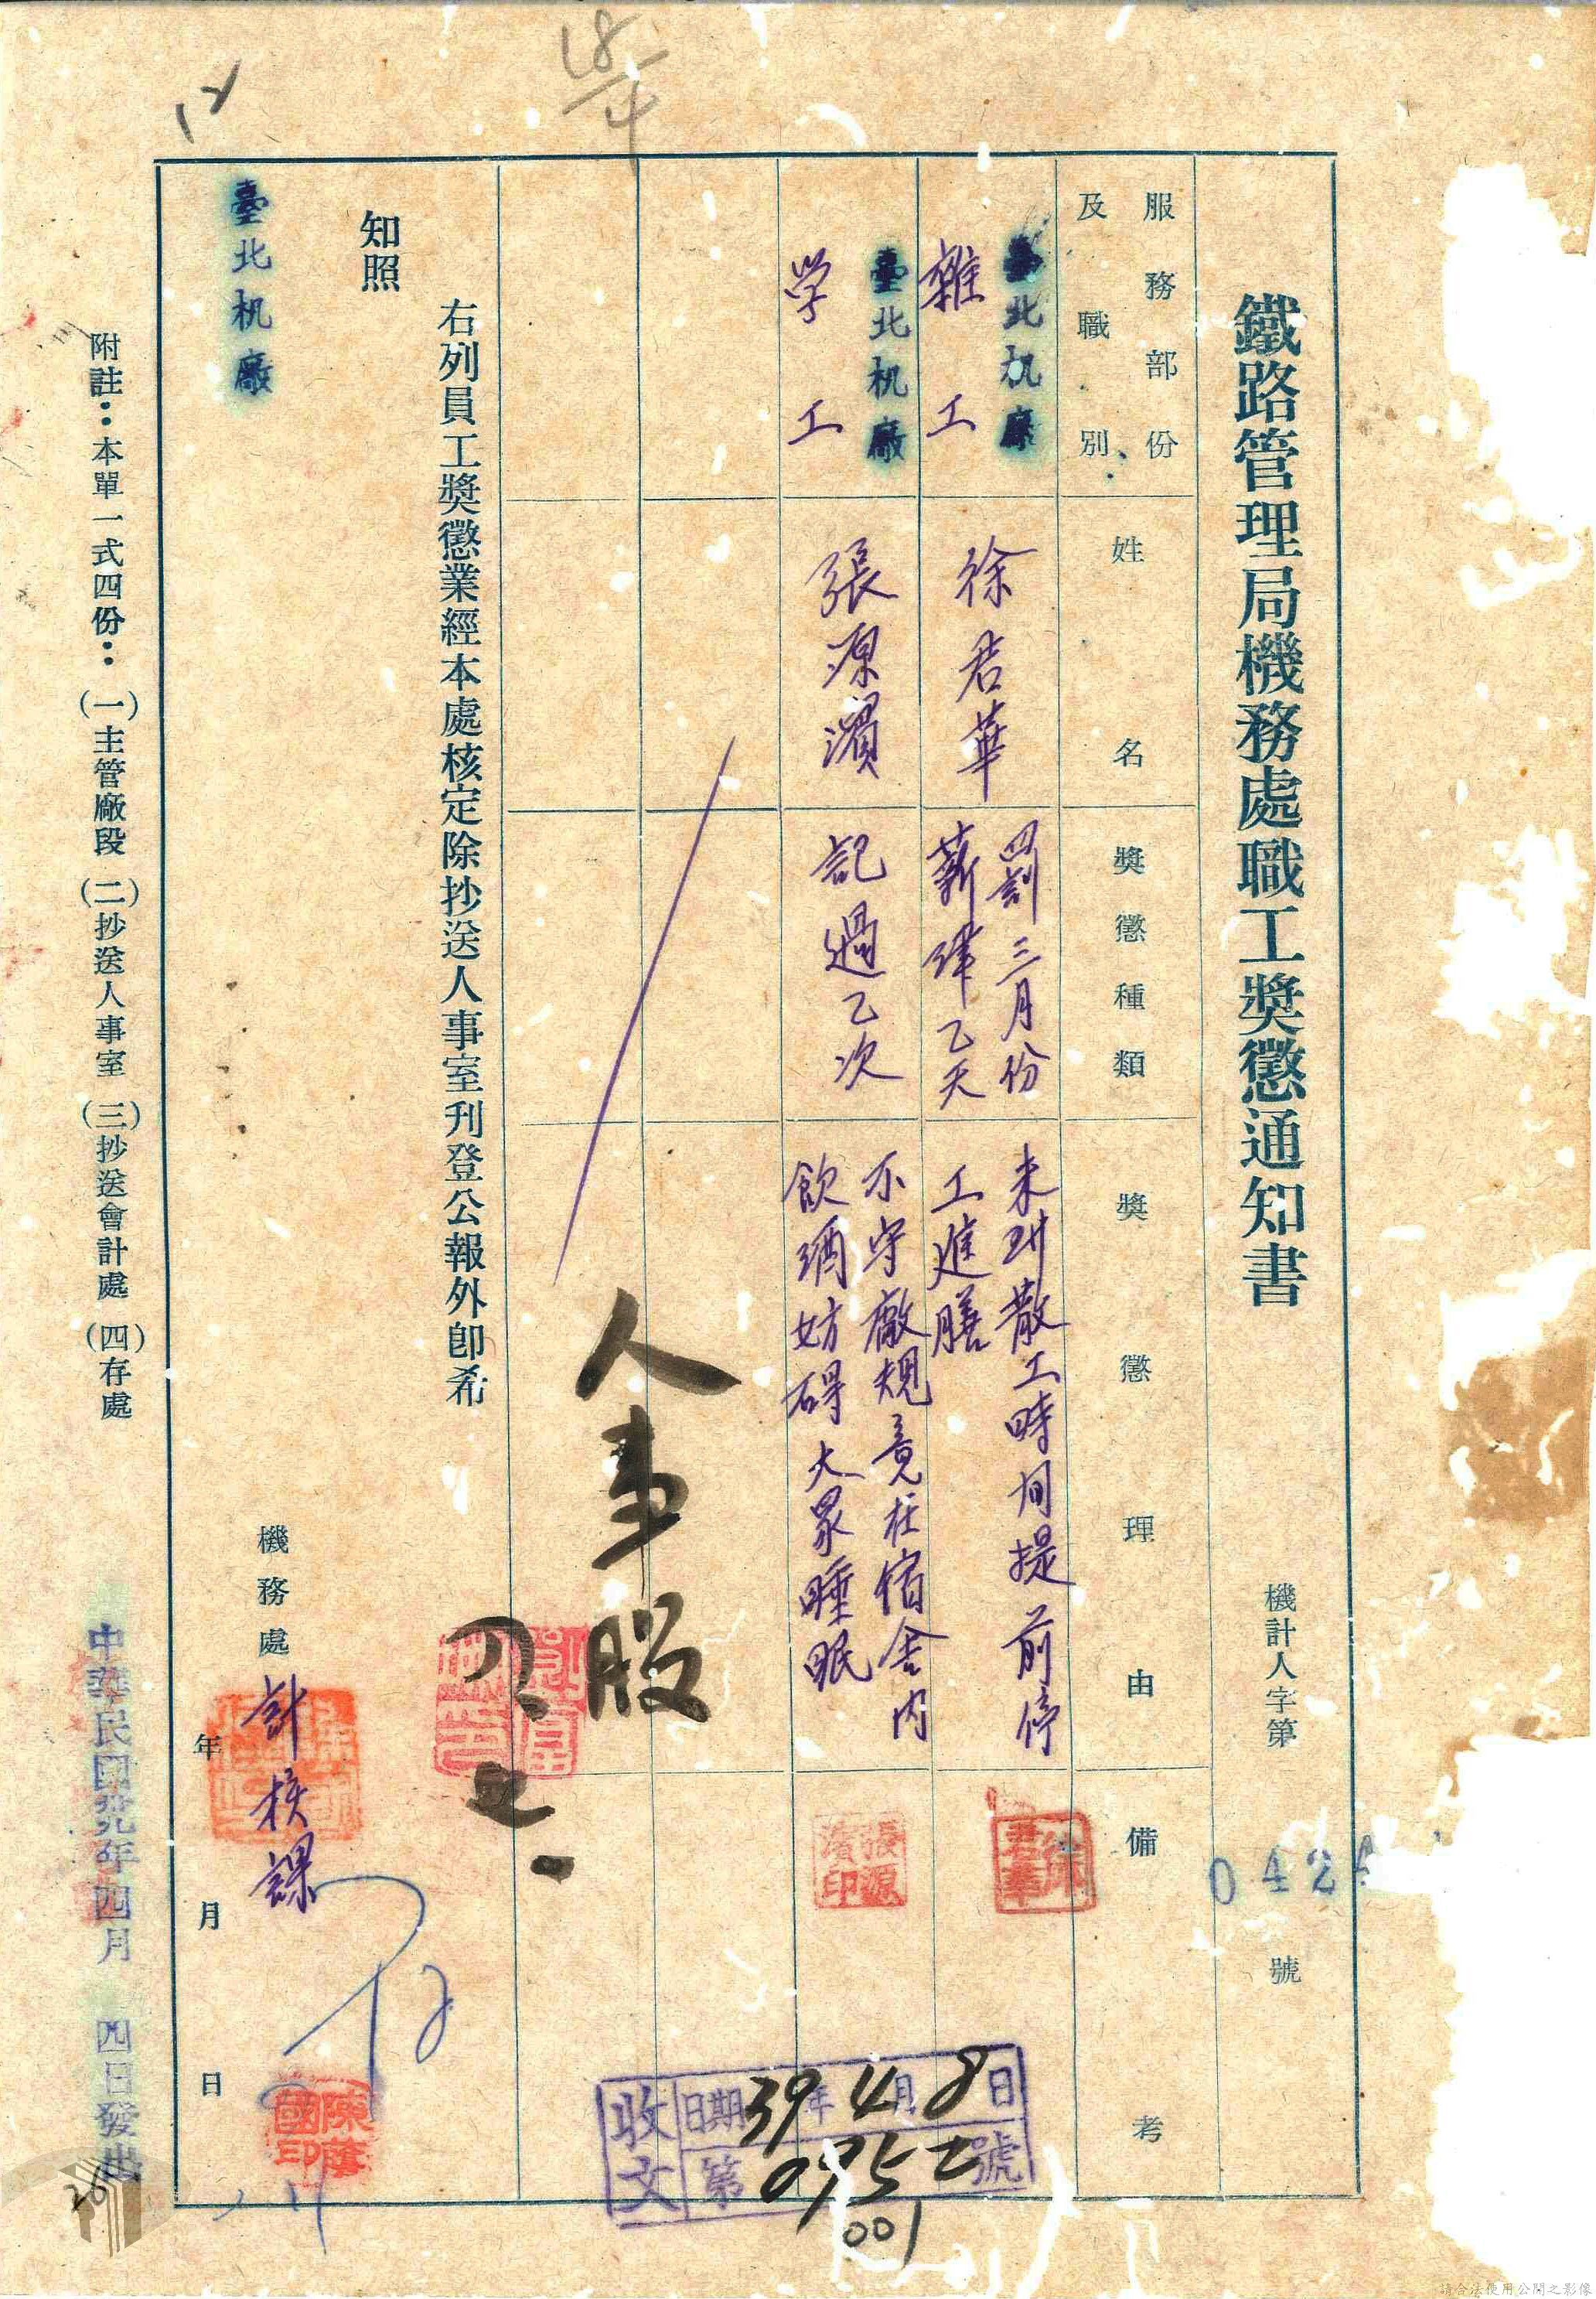 18/4
12
鐵路管理局機務處職工獎懲通知書
機計人字第 042 號
服務部份
及職別
姓名
獎懲種類
獎懲理由
備考
臺北机廠
雜工
徐君華
罰三月份
薪津乙天
未到散工時間提前停
工進膳
徐君華
臺北机廠
学工
張源濱
記過乙次
不守廠規竟在宿舍内
飲酒妨碍大眾睡眠
張源濱印
人事股
右列員工獎懲業經本處核定除抄送人事室刊登公報外卽希
知照
臺北机廠
機務處計核課
年月日
陳蔭國印
附註：本單一式四份：(一)主管廠段(二)抄送人事室(三)抄送會計處(四)存處
中華民國卅九年四月四日發出
收文
日期39年4月8日
第0752號
001
26
請合法使用公開之影像